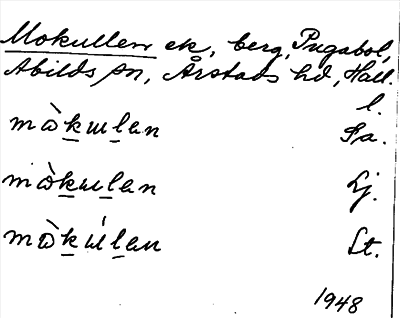 Mokullen ek, berg, Pugabol,
Abilds sn, Årstads hd, Hall.
l.
mὼkɯlen Sa.
mὼkɯlen Lj.
mὼkɯ́len St.
1948